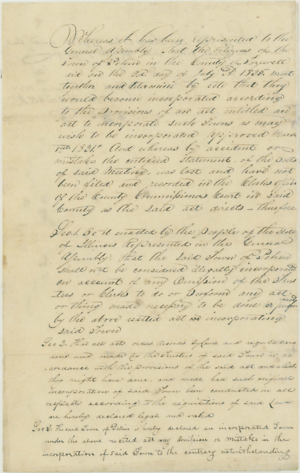 Whereas it has been represented to the
General Assembly that the Citizens of the
Town of Pekin in the County of Tazewell
did on the 2d day of July AD 1835 meet
together and determine by vote that they
would become incorporated according
to the provisions of an act entitled an
act to incorporate such Towns as may
wish to be incorporated approved
1831. And whereas by accident or
mistake the certified statement of the
of said Meeting was lost and have not
been filed and recorded in the Clerks office
of the County Commissioners Court in said
County as the said act directs — therefore
Sec 1 Be it enacted by the people of the State
of Illinois represented in the General
Assembly That the said Town of Pekin
shall not be considered illegally incorporated
on account of any omission of the Trus
tees or Clerks to do or perform any act
or thing made necessary to be done
by the above recited act in incorporating
said Town
Sec 2. That all acts orders Bylaws and regulations
and made by the Trustees of said Town in
accordance with the provisions of the said act and which
they might have done and made had such
incorporation of said Town been conducted in all
respects according to the requisitions of said Law
are hereby declared legal and valid
Sec 3. The said Town of Pekin is hereby declared an incorporated Town
under the above recited act any omission or mistakes in the
incorporation of said Town to the contrary notwithstanding